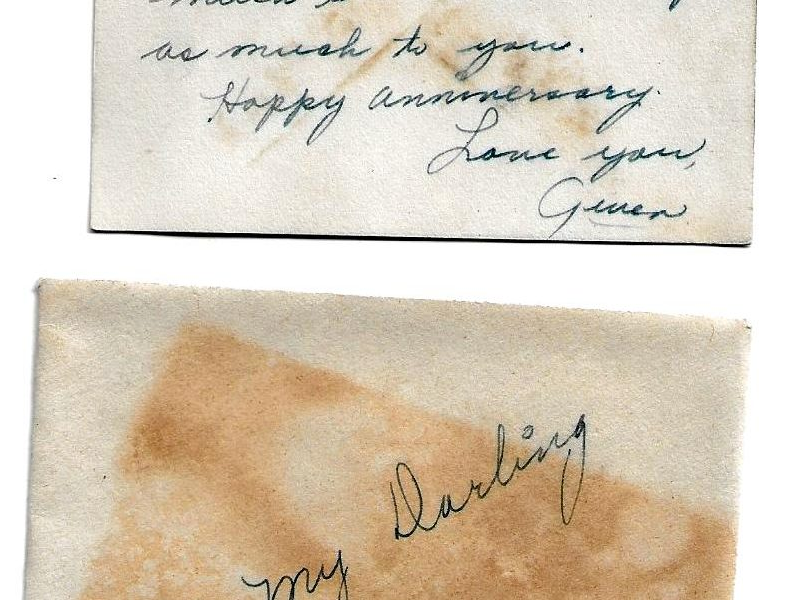 as much to you.
Happy anniversary.
Love you,
Gwen
My Darling